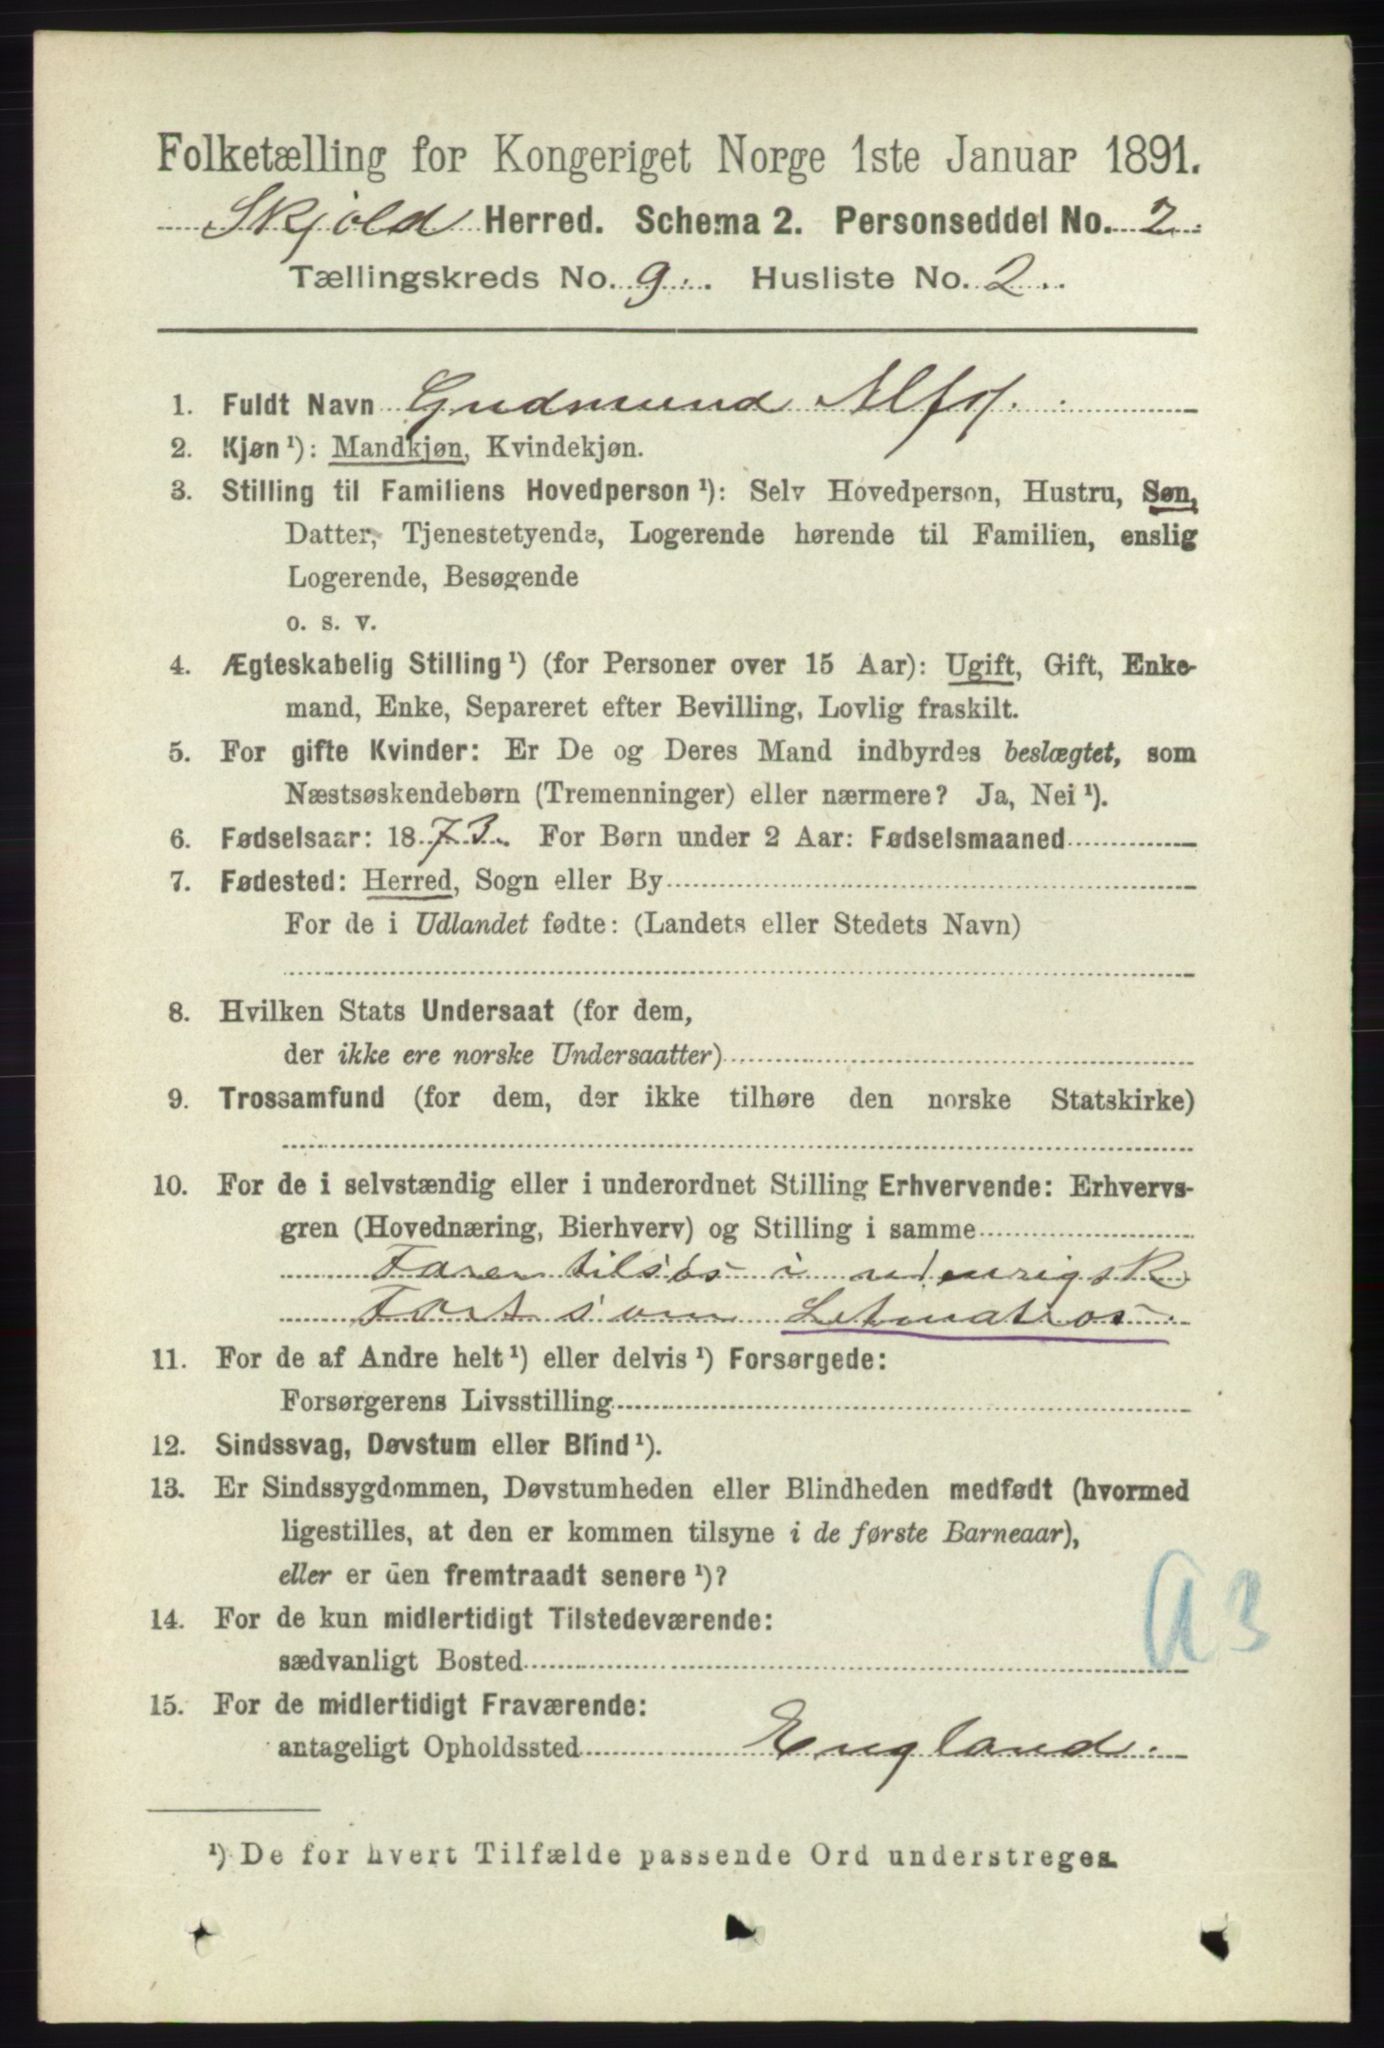 Folketælling for Kongeriget Norge 1ste Januar 1891.
Skjold Herred. Schema 2. Personseddel No. 2
Tællingskreds No. 9. Husliste No. 2.
1. Fuldt Navn Gudmund Alfs.
2. Kjøn ¹): Mandkjøn, Kvindekjøn.
3. Stilling til Familiens Hovedperson ¹): Selv Hovedperson, Hustru, Søn,
Datter, Tjenestetyende, Logerende hørende til Familien, enslig
Logerende, Besøgende
o. s. v.
4. Ægteskabelig Stilling ¹) (for Personer over 15 Aar): Ugift, Gift, Enke-
mand, Enke, Separeret efter Bevilling, Lovlig fraskilt.
5. For gifte Kvinder: Er De og Deres Mand indbyrdes beslægtet, som
Næstsøskendebørn (Tremenninger) eller nærmere? Ja, Nei ¹).
6. Fødselsaar: 1873. For Børn under 2 Aar: Fødselsmaaned
7. Fødested: Herred, Sogn eller By
For de i Udlandet fødte: (Landets eller Stedets Navn)
8. Hvilken Stats Undersaat (for dem,
der ikke ere norske Undersaatter)
9. Trossamfund (for dem, der ikke tilhøre den norske Statskirke)
10. For de i selvstændig eller i underordnet Stilling Erhvervende: Erhvervs-
gren (Hovednæring, Bierhverv) og Stilling i samme
Farer tilsøs i udenrigsk
Fart som Letmatros
11. For de af Andre helt ¹) eller delvis ¹) Forsørgede:
Forsørgerens Livsstilling
12. Sindssvag, Døvstum eller Blind ¹).
13. Er Sindssygdommen, Døvstumheden eller Blindheden medfødt (hvormed
ligestilles, at den er kommen tilsyne i de første Barneaar),
eller er den fremtraadt senere ¹)?
14. For de kun midlertidigt Tilstedeværende:
sædvanligt Bosted
A3
15. For de midlertidigt Fraværende:
antageligt Opholdssted England.
¹) De for hvert Tilfælde passende Ord understreges.